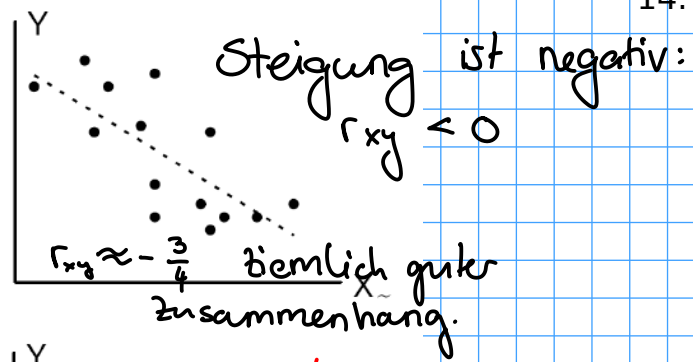 14.
Y
Steigung ist negativ:
rxy < 0
rxy ≈ - 3/4 ziemlich guter
X
zusammenhang.
Y